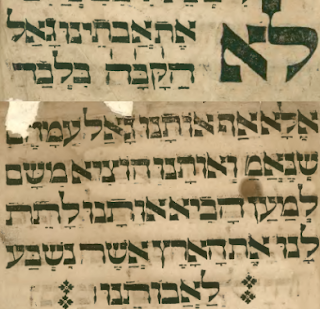 לא את אבתינו גאל
הקבה בלבד
אלא אף אותנו גאל עמהם
שנאמ ואותנו הוציא משם
למען הביא אותנו לתת
לנו את הארץ אשר נשבע
לאבותינו